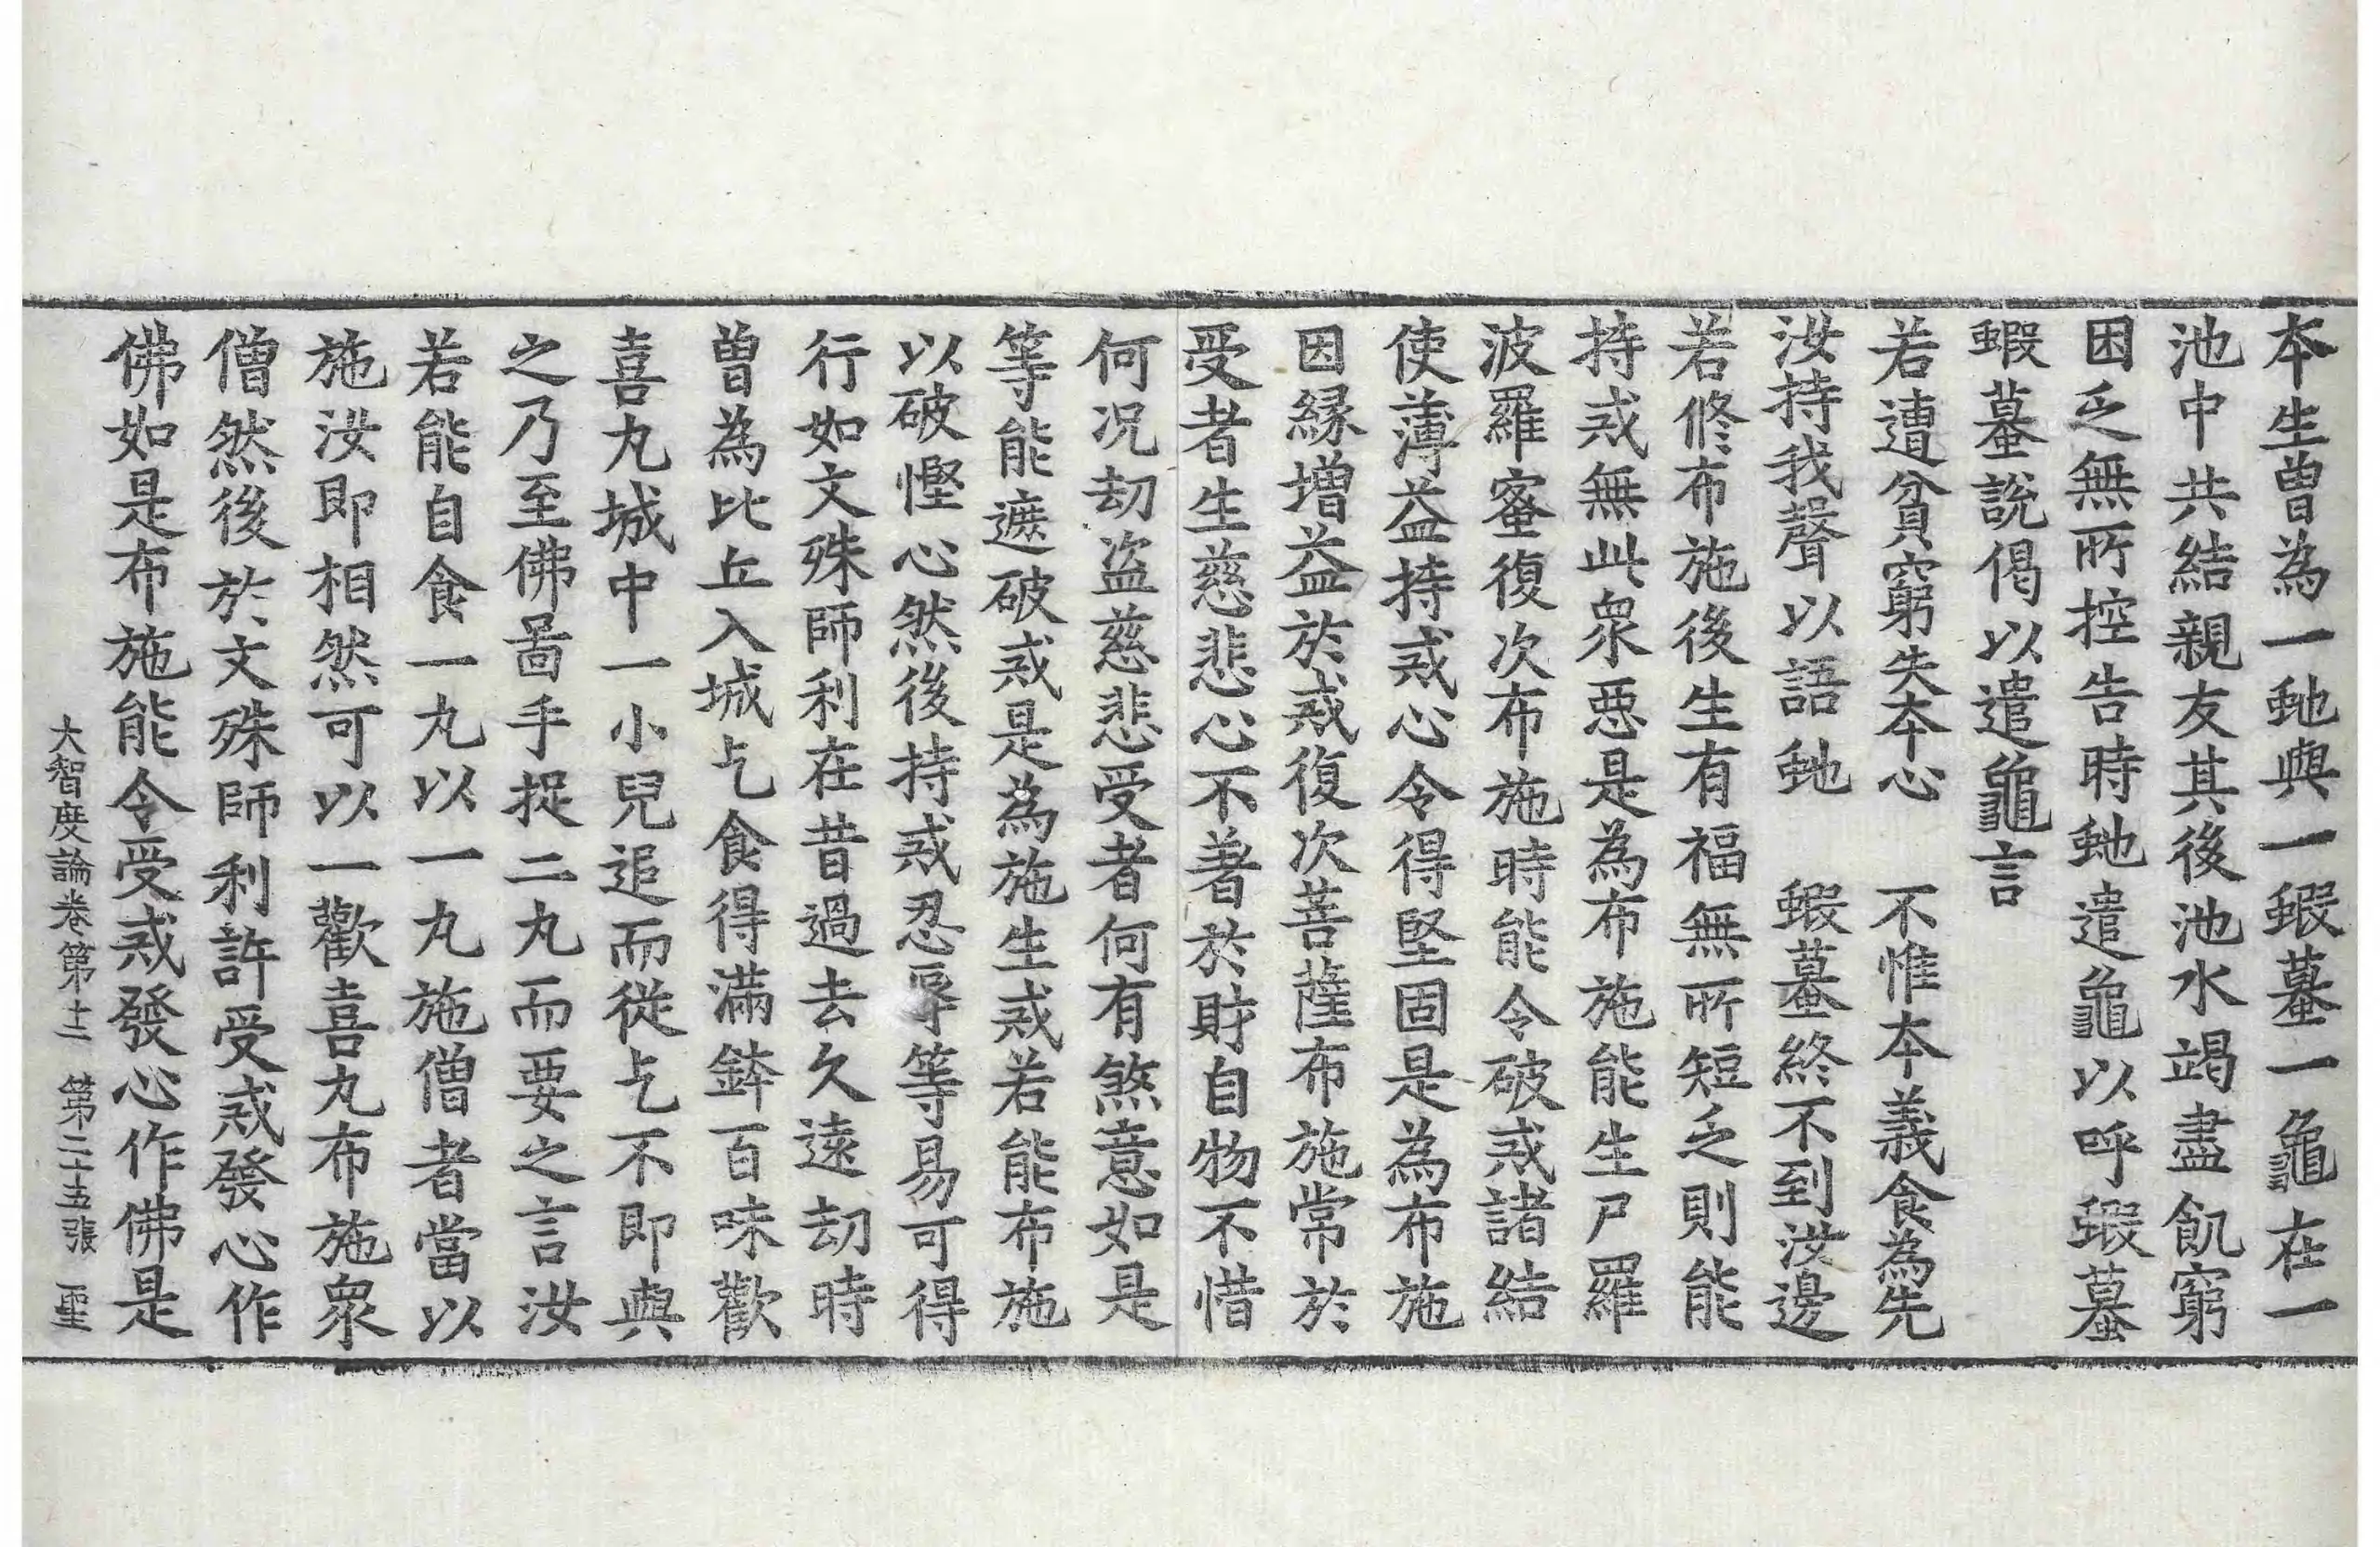 本生曽為一虵與一蝦蟇一龜在一
池中共結親友其後池水竭盡飢窮
困乏無所控告時虵遣龜以呼蝦蟇
蝦蟇說偈以遣龜言
若遭貧窮失本心　不惟本義食為先
汝持我聲以語虵　蝦蟇終不到汝邊
若修布施後生有福無所短乏則能
持戒無此衆惡是為布施能生尸羅
波羅蜜復次布施時能令破戒諸結
使薄益持戒心令得堅固是為布施
因縁增益於戒復次菩薩布施常於
受者生慈悲心不著於財自物不惜
何况劫盜慈悲受者何有煞意如是
等能遮破戒是為施生戒若能布施
以破慳心然後持戒忍辱等易可得
行如文殊師利在昔過去久遠劫時
曽為比丘入城乞食得滿鉢百味歡
喜丸城中一小兒追而從乞不即與
之乃至佛啚手捉二丸而要之言汝
若能自食一丸以一丸施僧者當以
施汝即相然可以一歡喜丸布施衆
僧然後於文殊師利許受戒發心作
佛如是布施能令受戒發心作佛是
大智度論卷第十二　第二十五張　聖